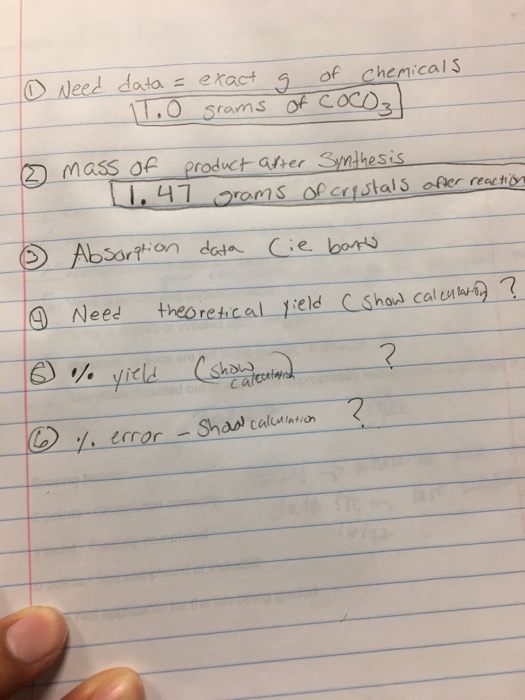 ① Need data = exact g of chemicals
1.0 grams of COCO3
② mass of product after Synthesis
1.47 grams of crystals after reaction
③ Absorption data (ie bands
④ Need theoretical yield (show calculation) ?
⑤ % yield (show calculation) ?
⑥ %. error - Show calculation ?